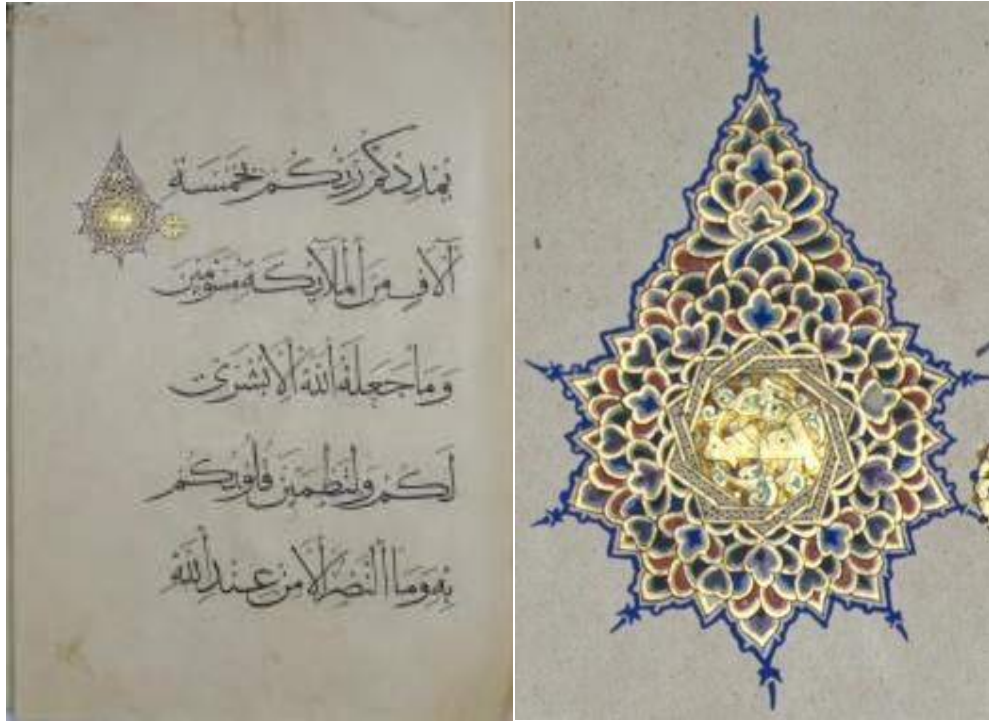 يُمْدِدْكُمْ رَبُّكُمْ بِخَمْسَةِ
آلَافٍ مِنَ الْمَلَائِكَةِ مُسَوِّمِينَ
وَمَا جَعَلَهُ اللهُ إِلَّا بُشْرَىٰ
لَكُمْ وَلِتَطْمَئِنَّ قُلُوبُكُمْ
بِهِ وَمَا النَّصْرُ إِلَّا مِنْ عِنْدِ اللهِ